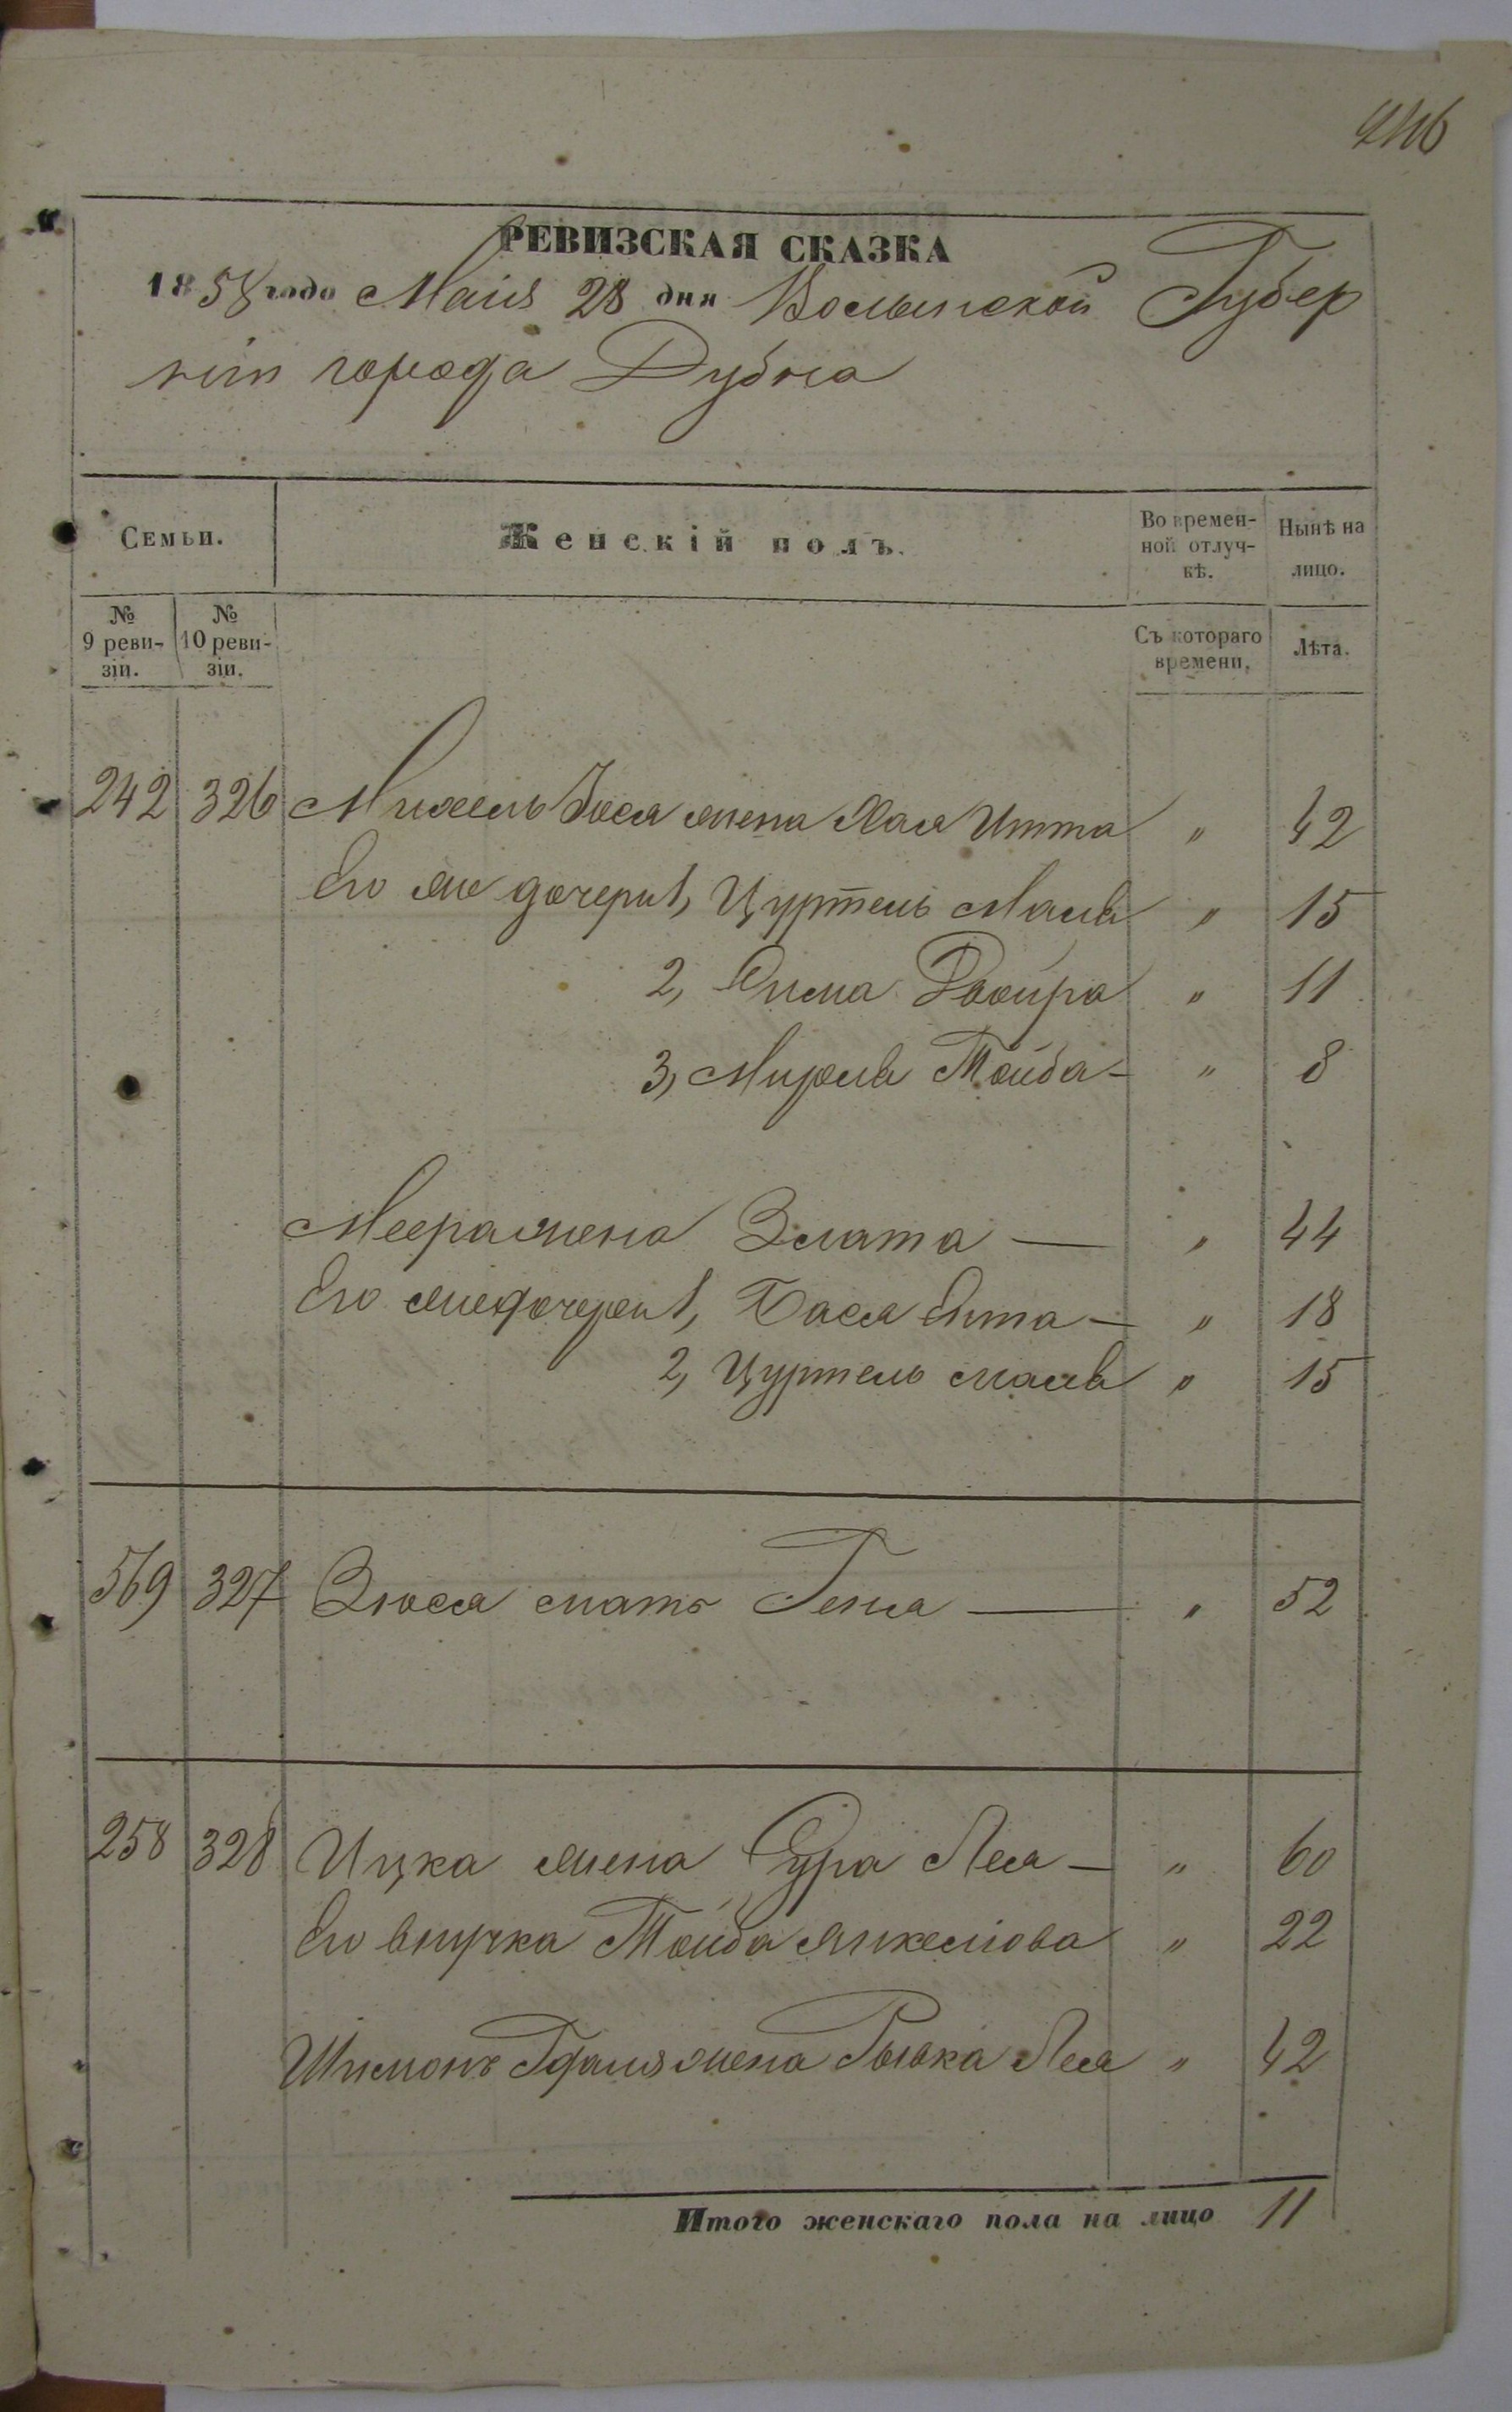 446
РЕВИЗСКАЯ СКАЗКА
1858 года Маія 28 дня Волынской Губер
ніи города Дубна
Семьи.
Женскій полъ.
Во времен-
ной отлуч-
кѣ.
Нынѣ на
лицо.
№
9 реви-
зіи.
№
10 реви-
зіи.
Съ котораго
времени.
Лѣта.
242 326 Михель Іося жена Хая Итта " 42
Его же дочери 1, Цуртель Маля " 15
2, Двойра " 11
3, Тойба - " 8
Меера жена Злата — " 44
Его же дочери 1, Бася Ента - " 18
2, Цуртель маля " 15
569 327 Зюся мать Гена — " 52
258 328 Ицка жена Сура Лея - " 60
Его внучка Тойба Янкелюва " 22
Шимонъ жена Рывка Лея " 42
Итого женскаго пола на лицо 11